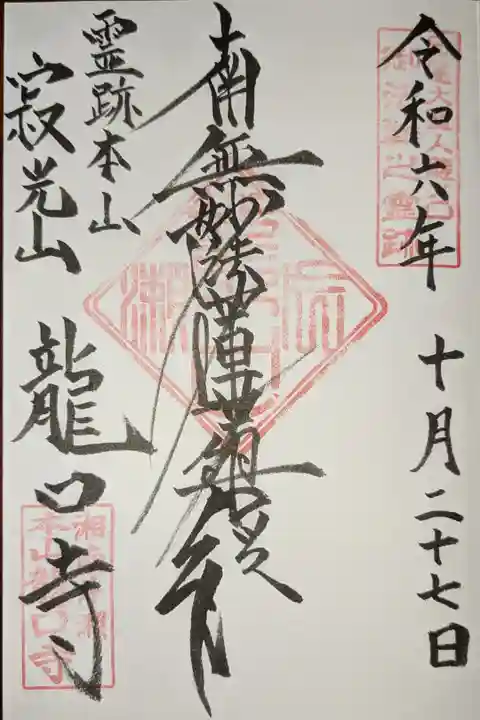 令和六年 十月二十七日
南無妙法蓮華経
霊跡本山
寂光山 龍口寺